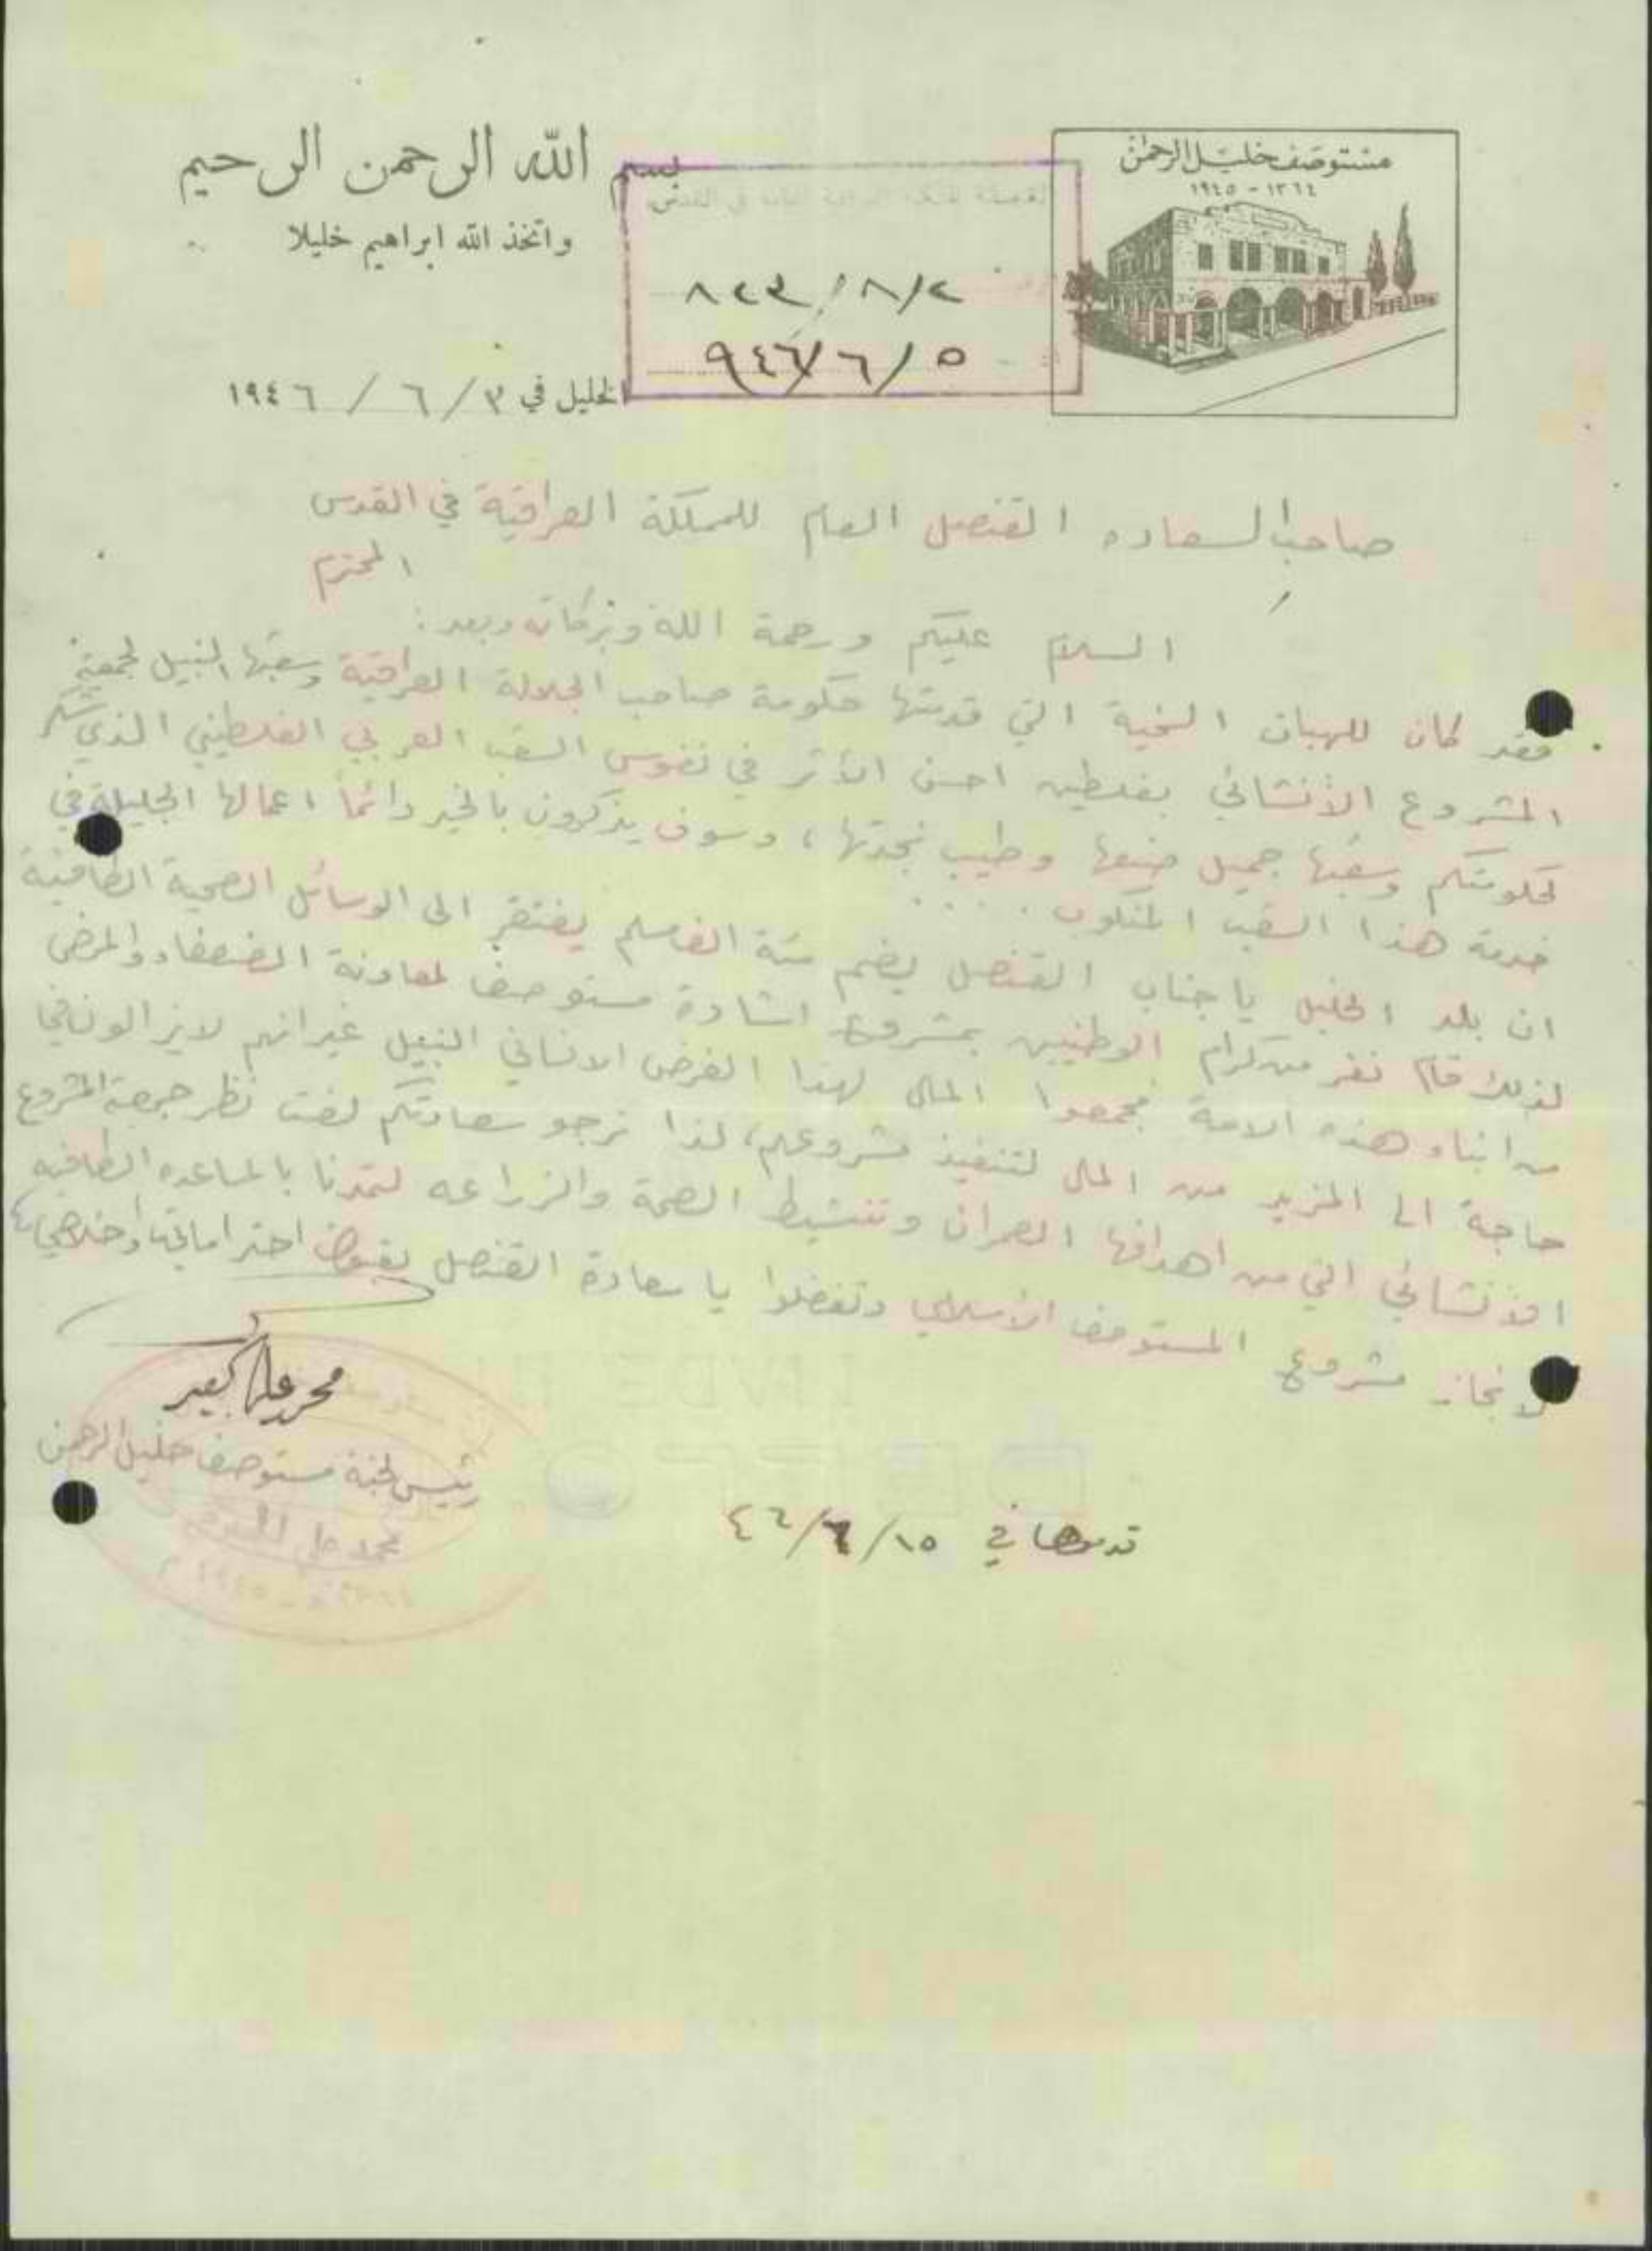 بسم الله الرحمن الرحيم
واتخذ الله ابراهيم خليلا
مستوصف خليل الرحمن
١٣٦٤ - ١٩٤٥
القنصلية الملكية العراقية العامة في القدس
٨/٢/
٩٤٦/٦/٥
الخليل في ٣ / ٦ / ١٩٤٦
صاحب السعاده القنصل العام للمملكة العراقية في القدس
المحترم
السلام عليكم ورحمة الله وبركاته وبعد:
فقد كان للهبات السخية التي قدمتها حكومة صاحب الجلالة العراقية وشعبها النبيل لجمعية
المشروع الأنشائي بفلسطين احسن الأثر في نفوس الشعب العربي الفلسطيني الذي يشكر
لحكومتكم وشعبها جميل صنيعها وطيب نجدتها، وسوف يذكرون بالخير دائماً اعمالها الجليلة في
خدمة هذا الشعب المنكوب . . . .
ان بلد الخليل يا جناب القنصل يضم مئة الف مسلم يفتقر الى الوسائل الصحية الكافية
لذلك قام نفر من كرام الوطنيين بمشروع اشادة مستوصف لمعاونة الضعفاء والمرضى
من ابناء هذه الامة فجمعوا المال لهذا الغرض الانساني النبيل غير انهم لا يزالون في
حاجة الى المزيد من المال لتنفيذ مشروعهم، لذا نرجو سعادتكم لفت نظر جمعية المشروع
الأنشائي التي من اهدافها العمران وتنشيط الصحة والزراعه لتمدنا بالمساعده الكافيه
لانجاز مشروع المستوصف الأسلامي وتفضلوا يا سعادة القنصل بقبول احتراماتي واخلاصي
محمد علي الجعبري
رئيس لجنة مستوصف خليل الرحمن
محمد علي الجعبري
١٣٦٤ هـ - ١٩٤٥ م
في ١٥/٦/٤٦